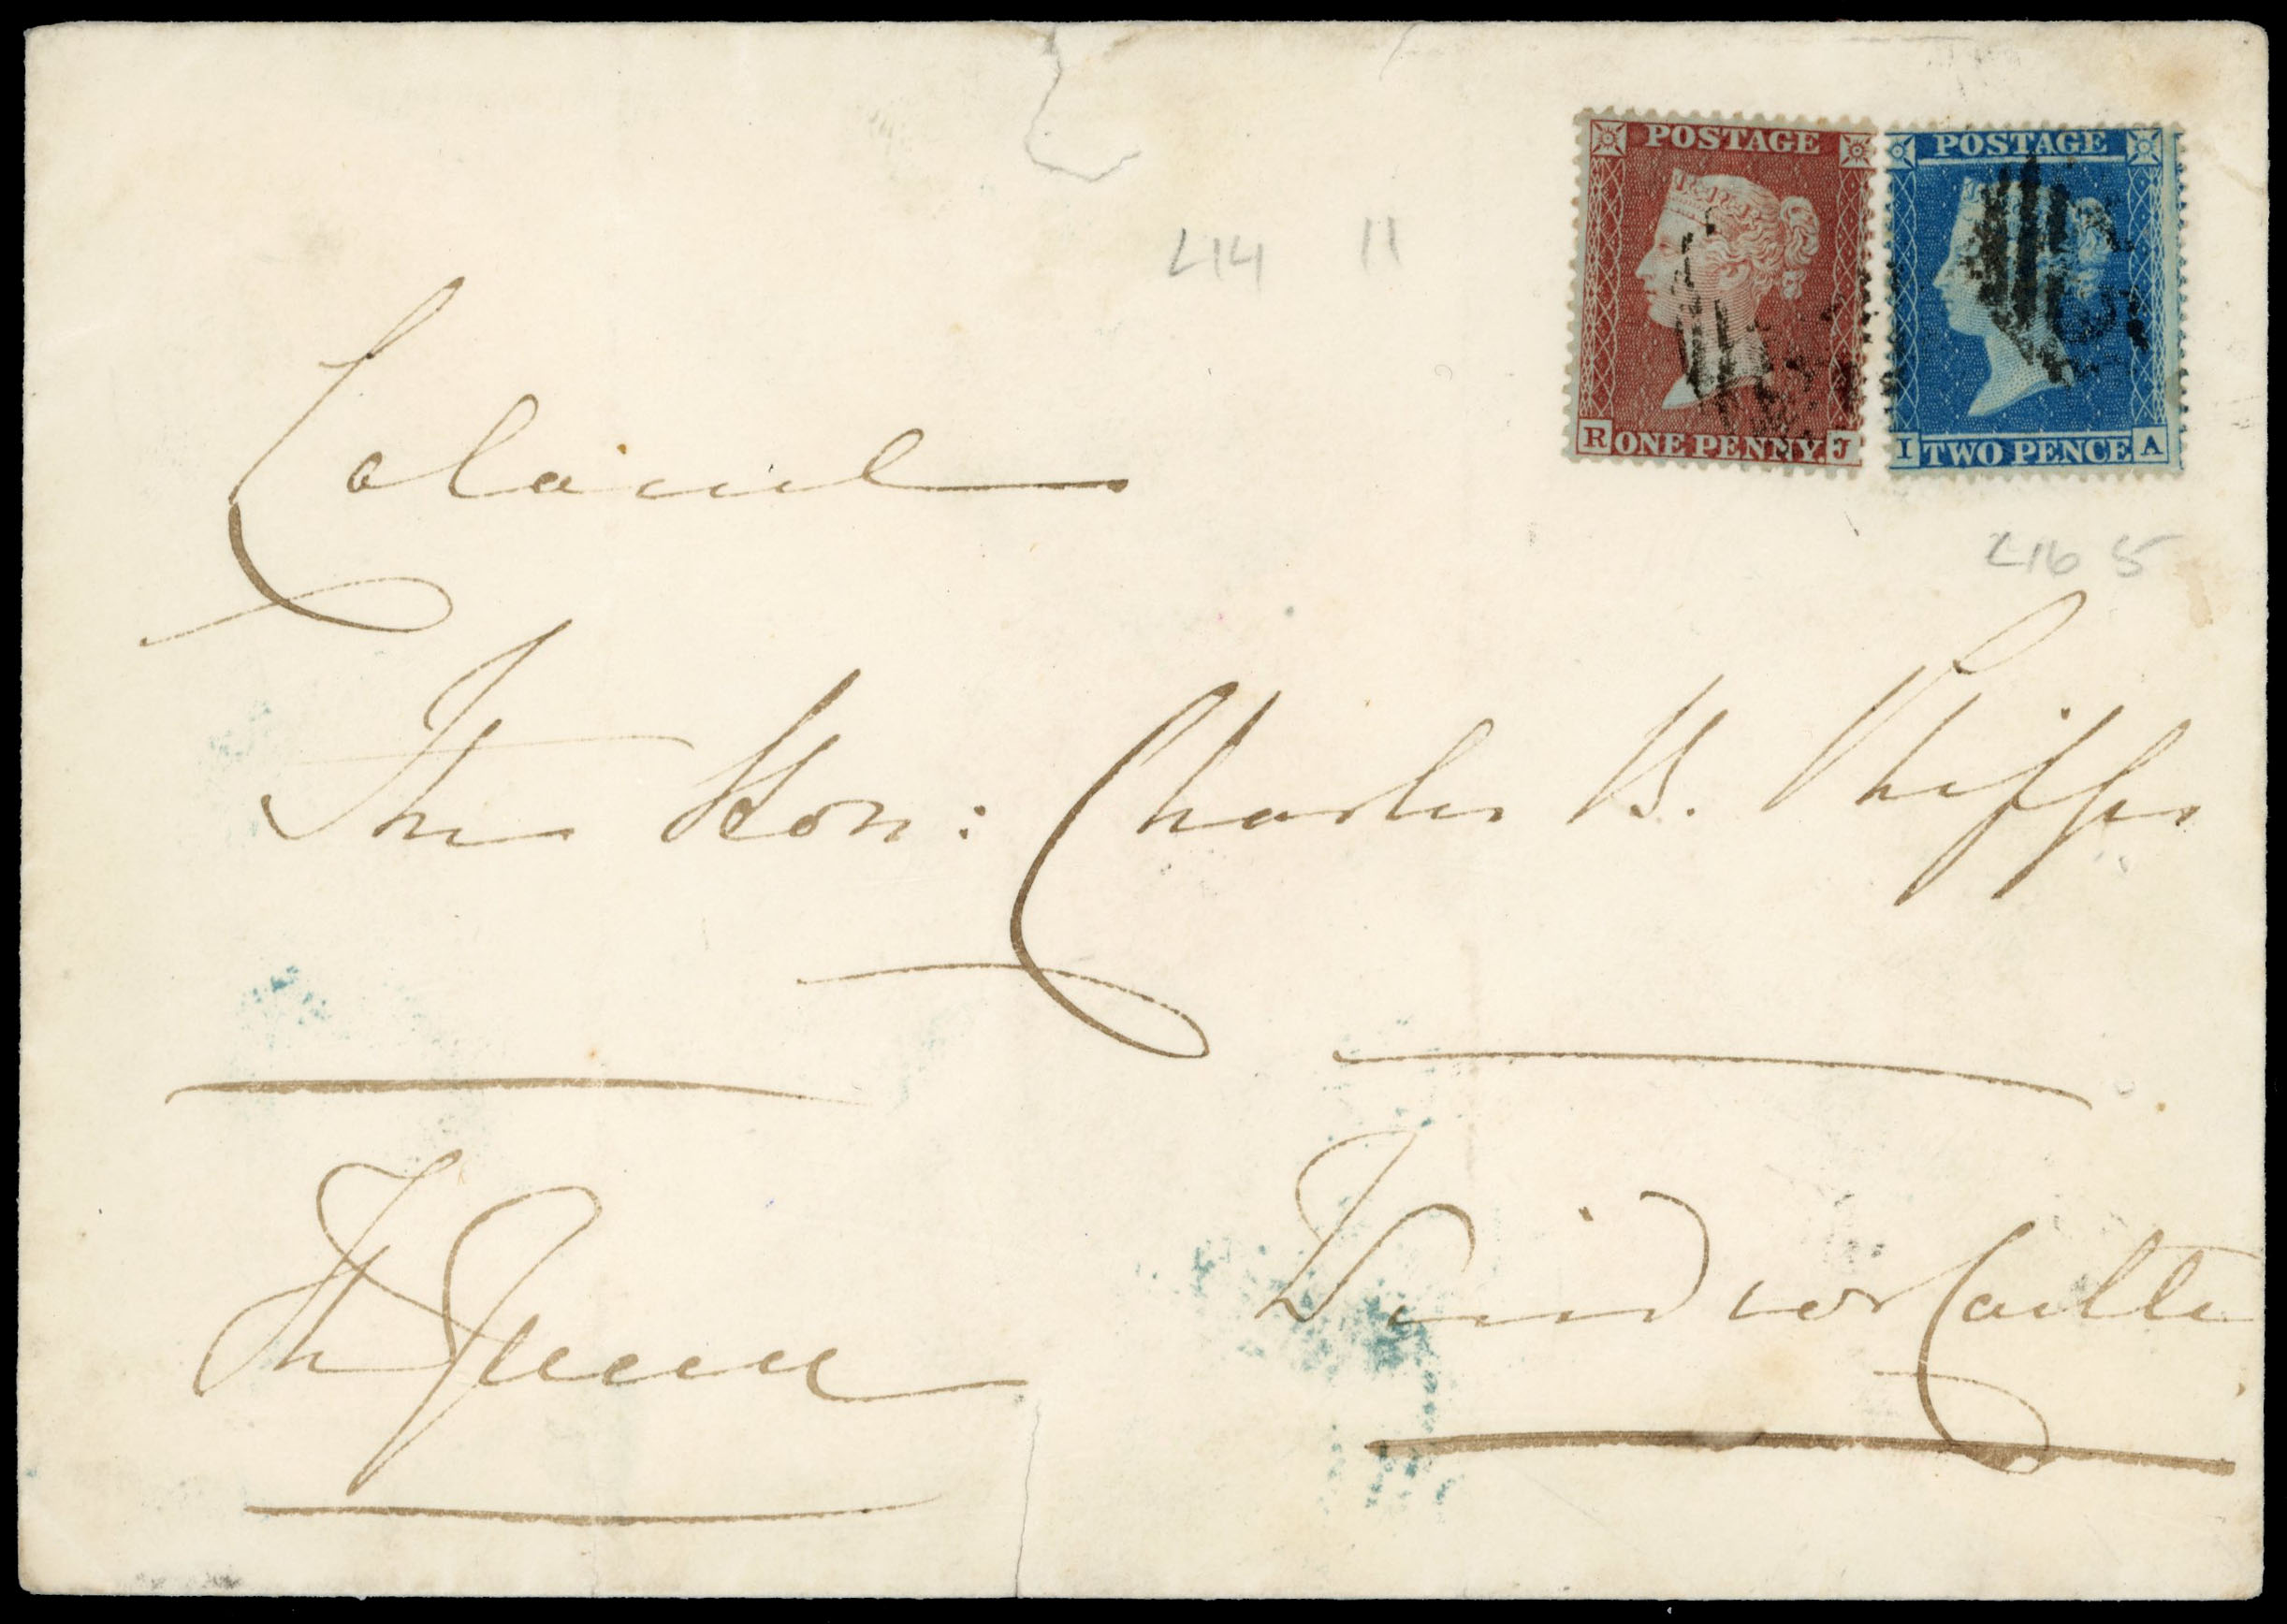 POSTAGE POSTAGE
R ONE PENNY J I TWO PENCE A
L14 11
L16 5
Colonel
The Hon: Charles B. Phipps
The Queen
Windsor Castle